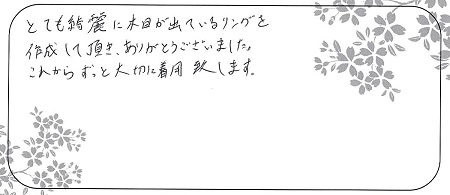 とても綺麗に木目が出ているリングを
作成して頂き、ありがとうございました。
これからずっと大切に着用致します。